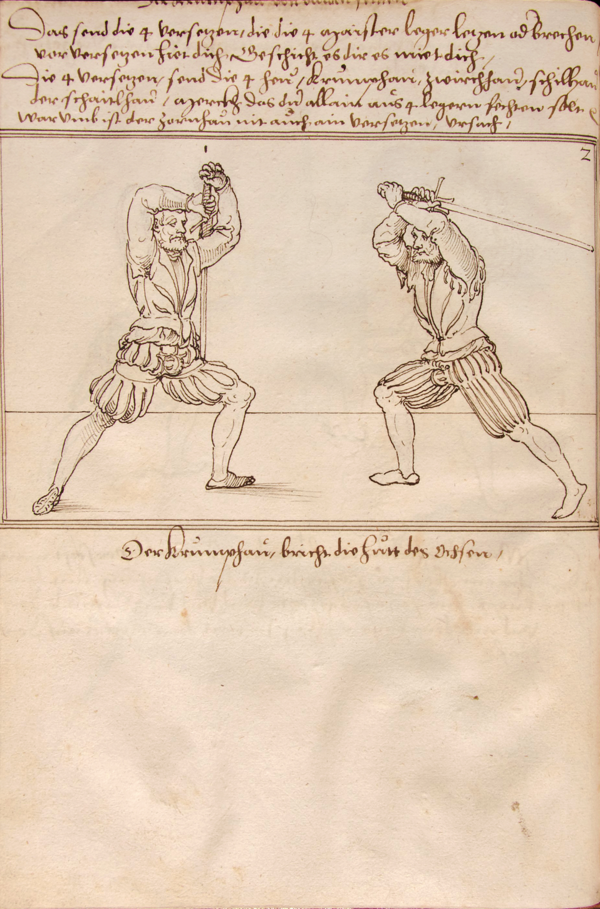 Das send die 4 versetzen, die die 4 maister leger letzen od brechen,
vor versetzen hiet dich, Geschicht es dir es miet dich,
Die 4 versetzen, send die 4 heu, Krumphau, zwirchhau, schilhau
der schaitlhau, merckh das du allain aus 4 legern fechten solt
war umb ist der zornhau nit auch ain versetzen, Ursach,
1
2
Der Krumphau, bricht die hutt des Ochsen,